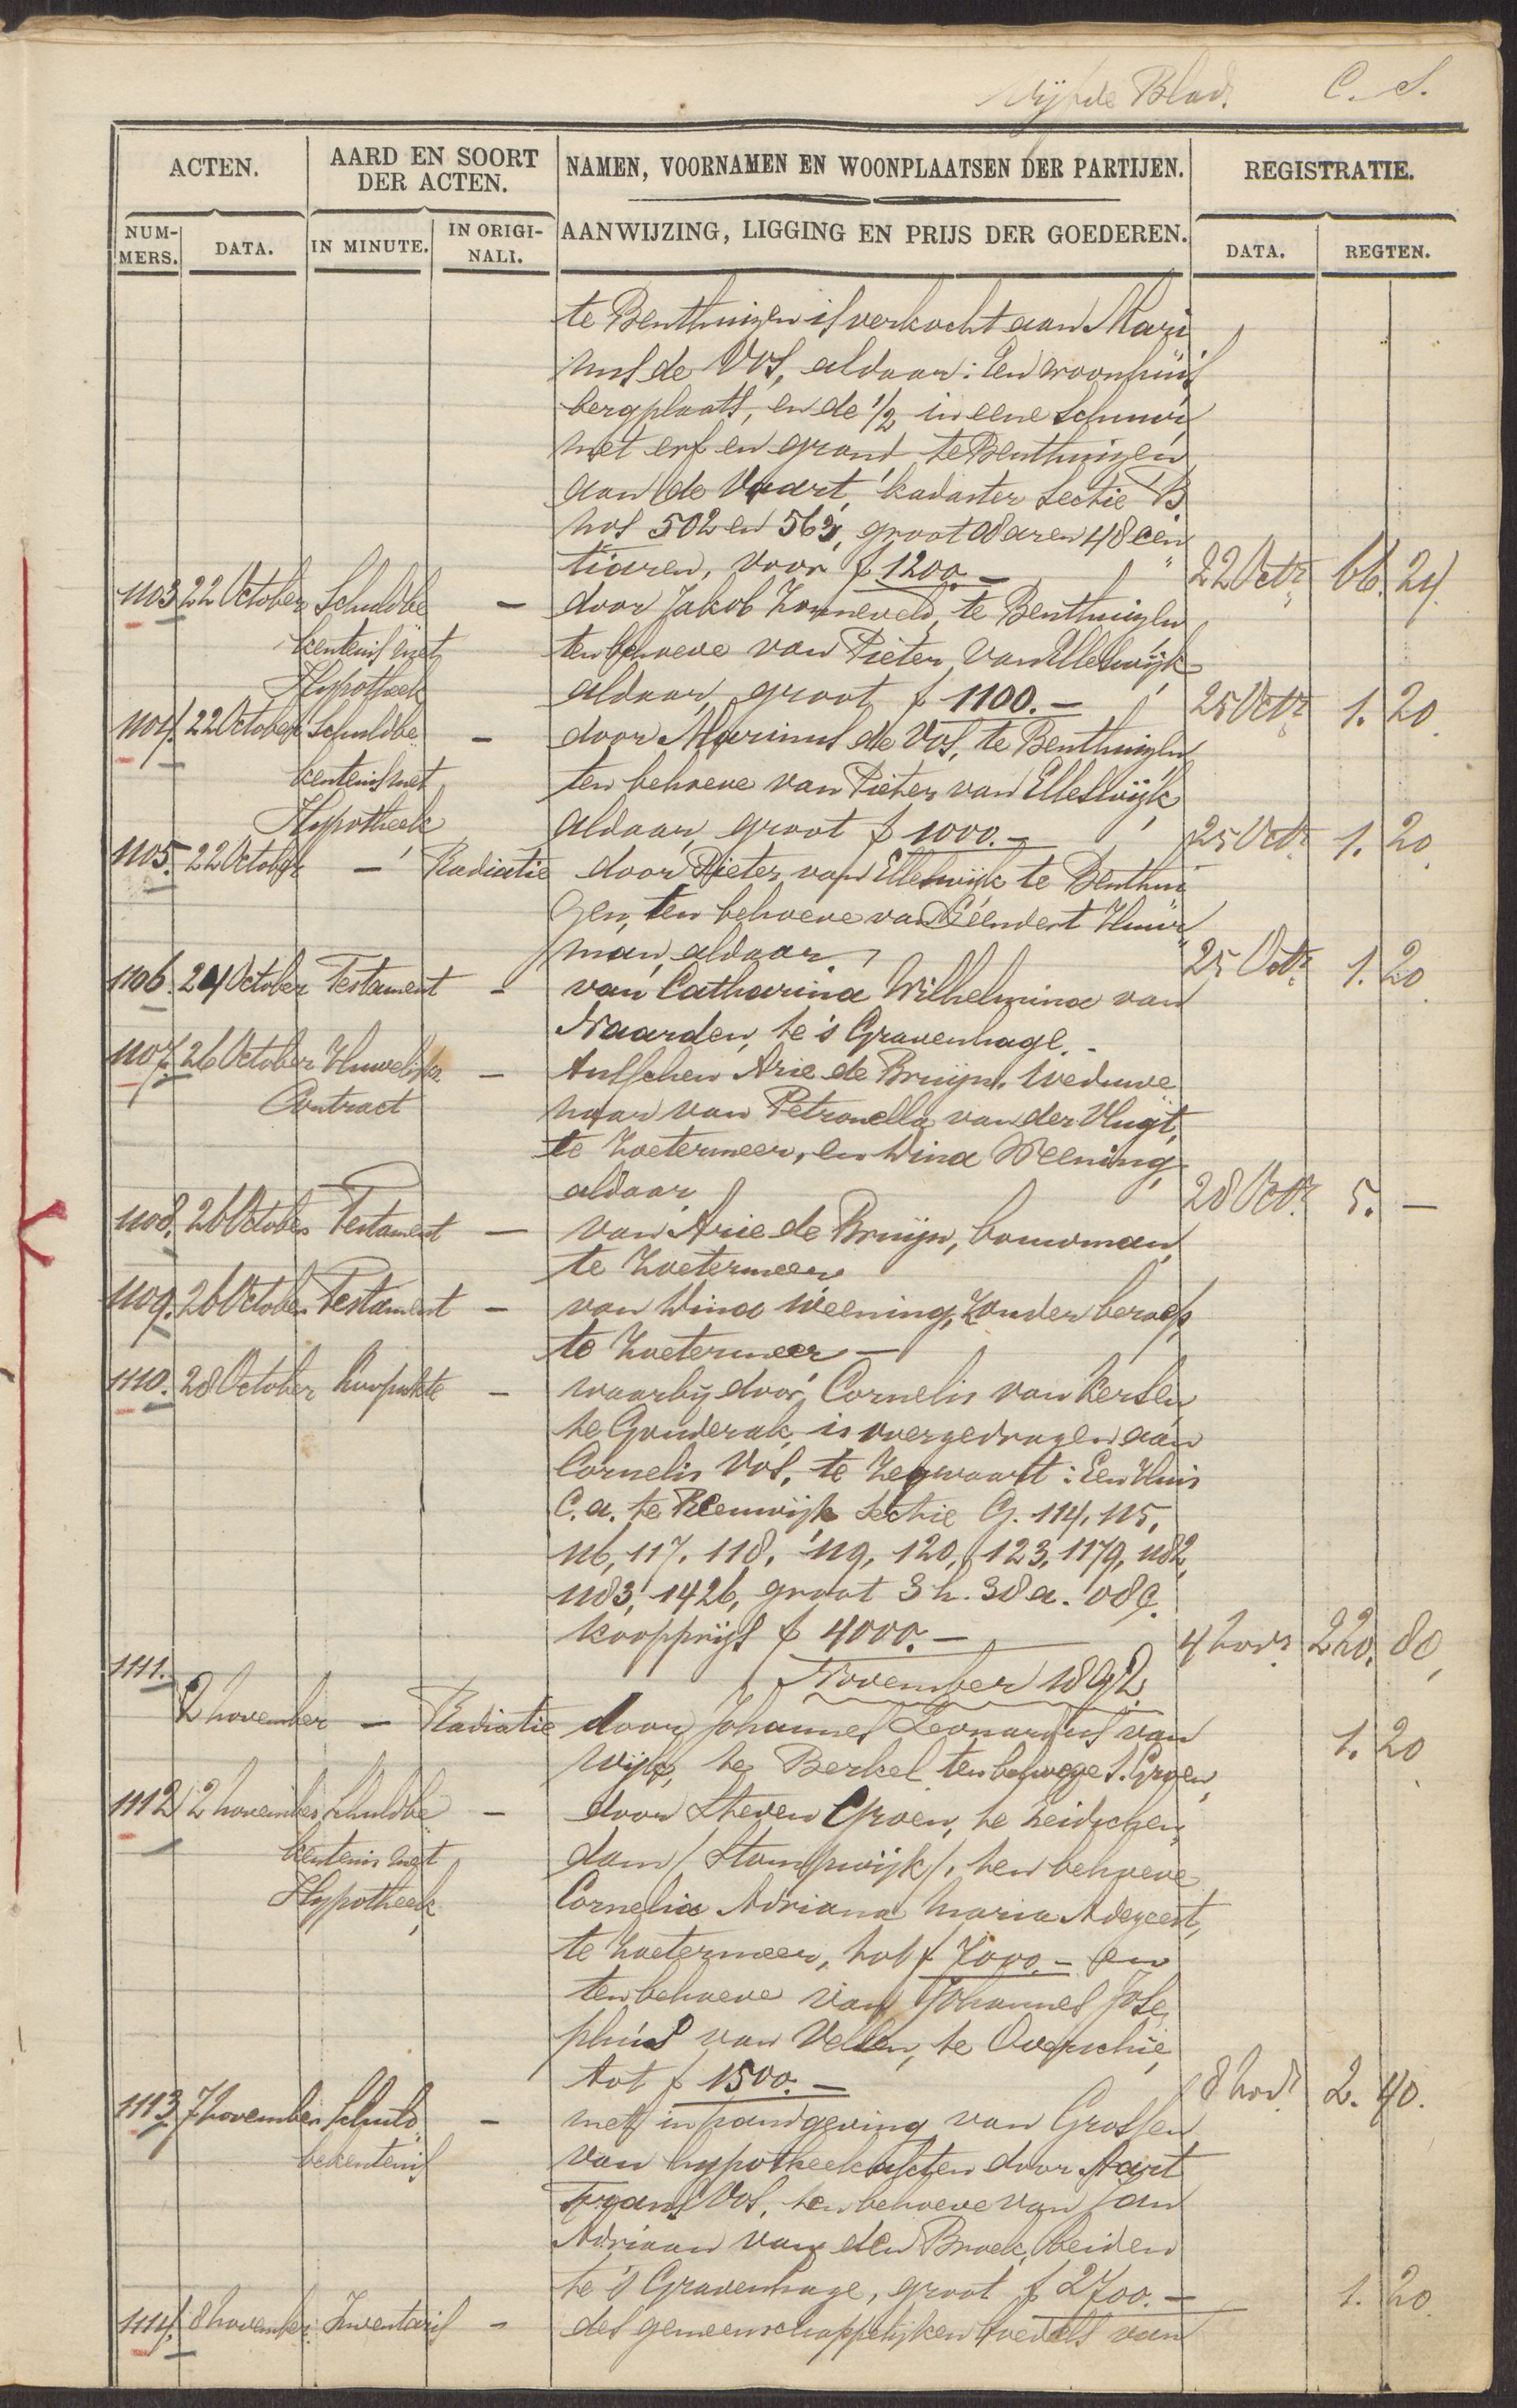 Vijfde Blad. C. S.
ACTEN. AARD EN SOORT DER ACTEN. NAMEN, VOORNAMEN EN WOONPLAATSEN DER PARTIJEN. REGISTRATIE.
NUM-MERS. DATA. IN MINUTE. IN ORIGI-NALI. AANWIJZING, LIGGING EN PRIJS DER GOEDEREN. DATA. REGTEN.
te Benthuizen is verkocht aan Mari
nus de Vos, aldaar: Een woonhuis
bergplaats, en de 1/2 in eene schuur,
met erf en grond te Benthuizen
aan de Vaart, kadaster Sectie B
nos 502 en 563, groot 08 aren 48 cen
tiaren, voor f 1200.— 22 Octr 66. 24.
1103 22 October Schuldbe — door Jakob Zonneveld, te Benthuizen
kentenis met ten behoeve van Pieter van Elleswijk
Hypotheek aldaar, groot f 1100.— 25 Octr 1. 20
1104. 22 October Schuldbe — door Marinus de Vos, te Benthuizen
kentenis met ten behoeve van Pieter van Elleswijk
Hypotheek aldaar, groot f 1000.— 25 Octr 1. 20
1105. 22 October — Radiatie door Pieter van Elleswijk te Benthui
zen, ten behoeve van Leendert Huur
man, aldaar. 25 Octr 1. 20
1106. 24 October Testament — van Catharina Wilhelmina van
Naarden, te 's Gravenhage.—
1107. 26 October Huwelijks — tusschen Arie de Bruijn, weduwe
Contract naar van Petronella van der Vlugt,
te Zoetermeer, en Wina Weening,
aldaar 28 Octr. 5. —
1108. 26 October Testament — van Arie de Bruijn, bouwman,
te Zoetermeer
1109. 26 October Testament — van Wina Weening, zonder beroep,
te Zoetermeer —
1110. 28 October Koopakte — waarbij door Cornelis van Kersen
te Gouderak, is overgedragen aan
Cornelis Vos, te Zegwaart: Een Huis
C.a. te Reeuwijk Sectie G. 114, 115,
116, 117, 118, 119, 120, 123, 1179, 1182,
1183, 1426, groot 3 h. 38 a. 08 c.
koopprijs f 4000.— 4 Novr 220. 80
1111. November 1892
2 november — Radiatie door Johannes Leonardus van
Wijk, te Berkel ten behoeve S. Groen, 1. 20
1112 2 november Schuldbe — door Steven Groen, te Leidschen
kentenis met dam (Stompwijk), ten behoeve
Hypotheek Cornelia Adriana Maria Adegeest,
te Zoetermeer, tot f 7000.— en
ten behoeve van Johannes Jose
phus van Velsen, te Overschie,
tot f 1500.— 8 Novr 2. 40.
1113 7 november Schuld — met inpandgeving van Grossen
bekentenis van hypotheekakten door Aart
Frans Vos, ten behoeve van Jan
Adriaan van den Broek, beiden
te 's Gravenhage, groot f 2700.— 1. 20.
1114. 8 november Inventaris — des gemeenschappelijken boedels van